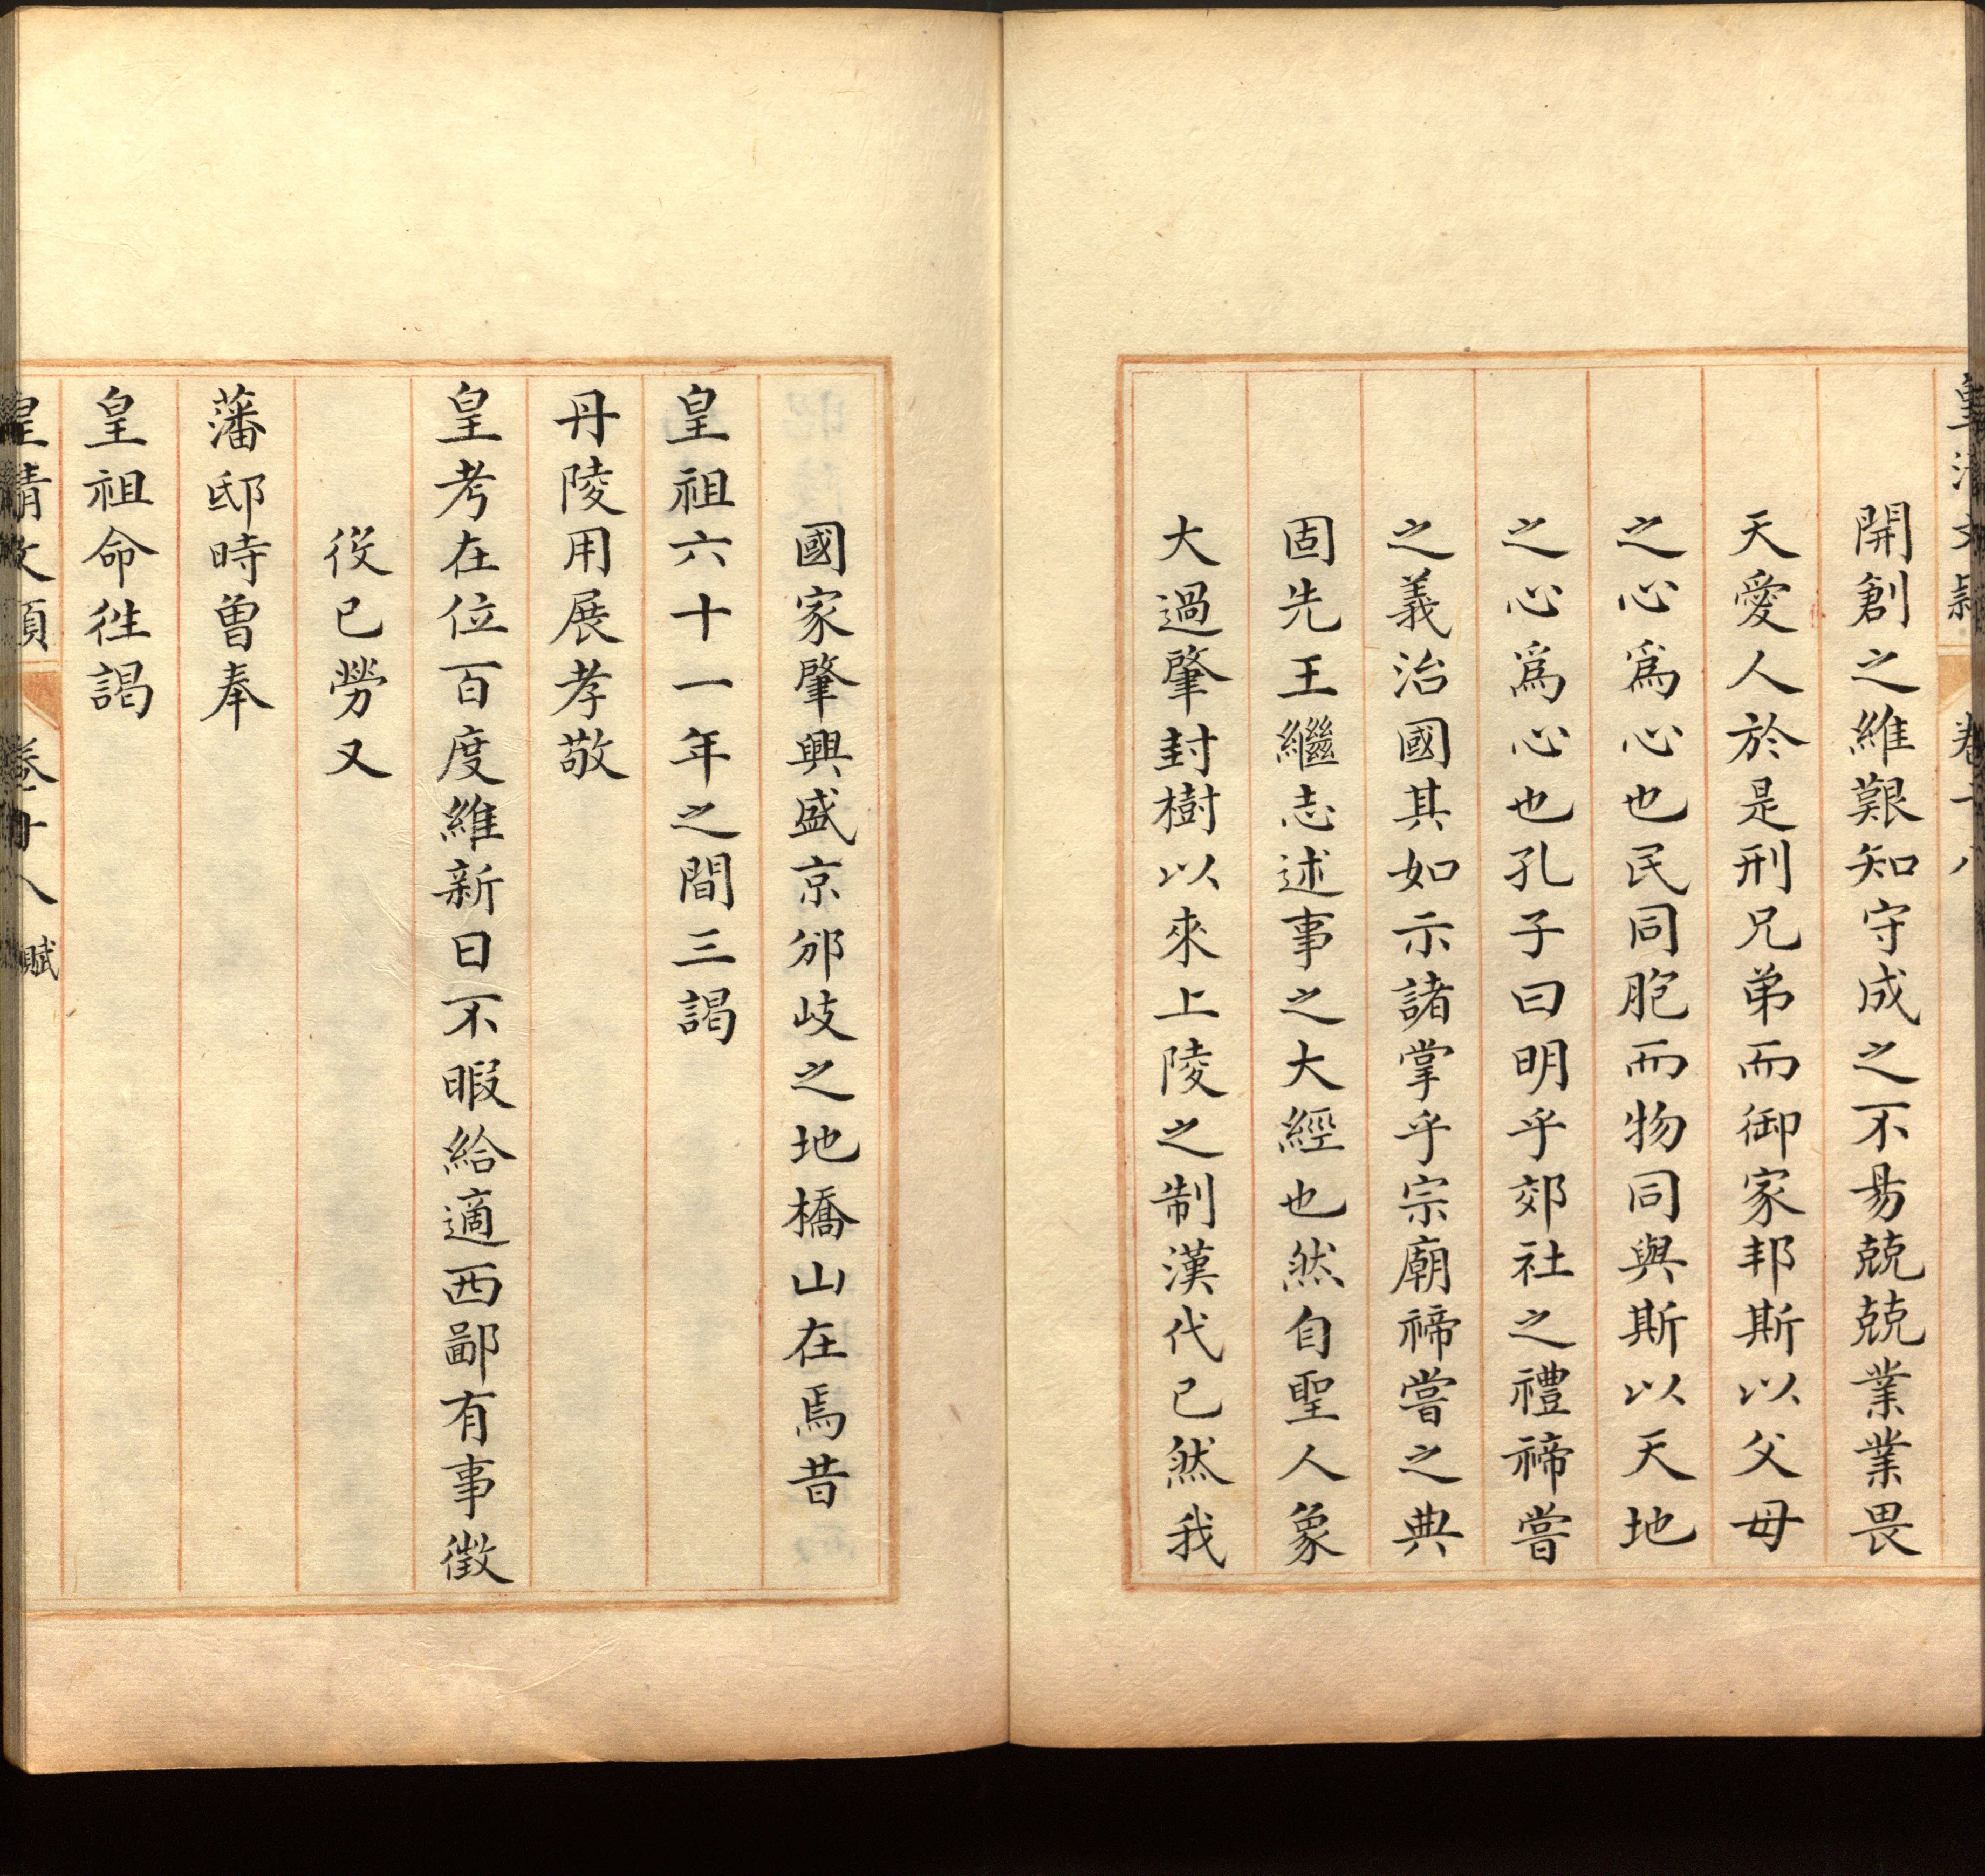 皇清文穎 卷十八
開創之維艱知守成之不易兢兢業業畏
天愛人於是刑兄弟而御家邦斯以父母
之心為心也民同胞而物同與斯以天地
之心為心也孔子曰明乎郊社之禮禘嘗
之義治國其如示諸掌乎宗廟禘嘗之典
固先王繼志述事之大經也然自聖人象
大過肇封樹以來上陵之制漢代已然我
國家肇興盛京邠岐之地橋山在焉昔
皇祖六十一年之間三謁
丹陵用展孝敬
皇考在位百度維新日不暇給適西鄙有事徵
役已勞又
藩邸時曾奉
皇祖命徃謁
皇清文穎 卷十八 賦